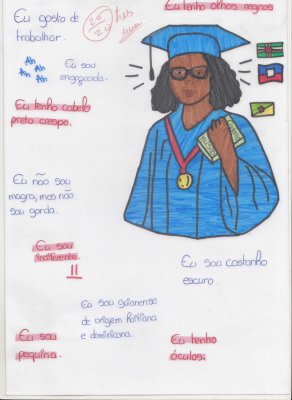 Eu tenho olhos negros
Eu gosto de
trabalhar.
20
20
Ah
Ah
Ah
Ah
Eu sou
engraçada.
Eu tenho cabelo
preto crespo.
Eu não sou
magra, mas não
sou gorda.
Eu sou
indiferente.
Eu sou castanho
escuro.
Eu sou guianense
de origem haitiana
e dominicana.
Eu sou
pequina.
Eu tenho
óculos.